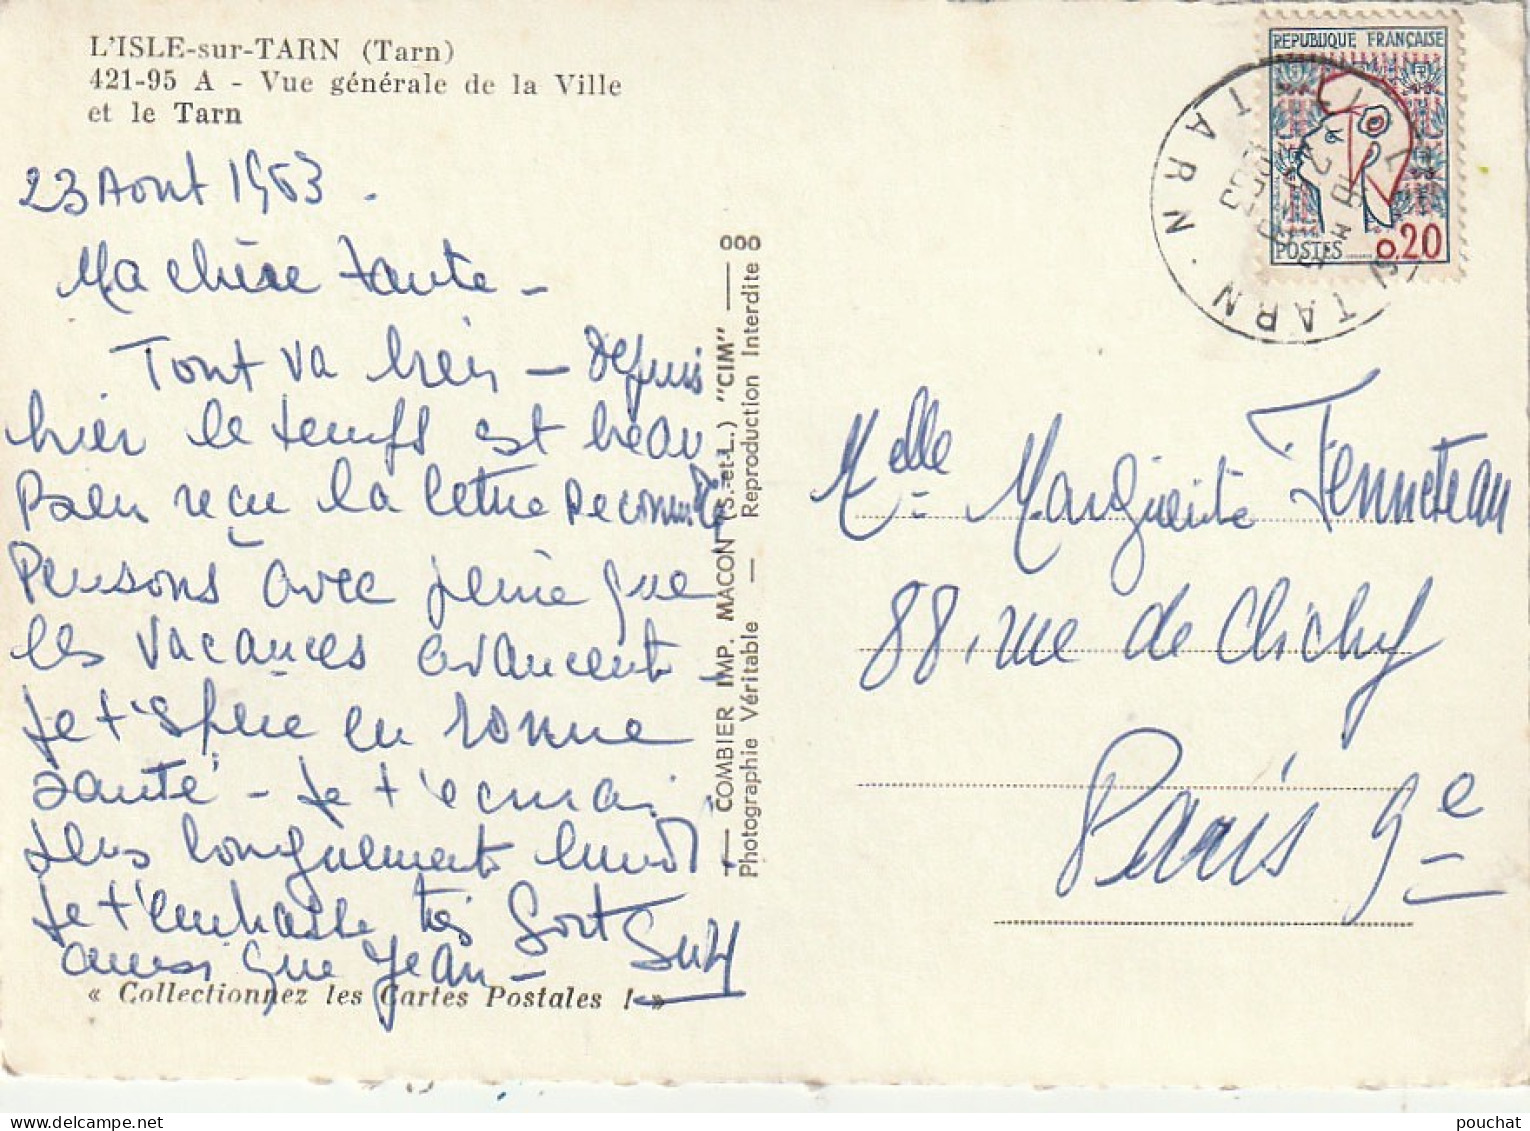 L'ISLE-sur-TARN (Tarn)
421-95 A - Vue générale de la Ville
et le Tarn
23 Aout 1963.
Ma chère tante -
Tout va bien - depuis
hier le temps est beau
Bien reçu la lettre
Pensons avec peine que
les vacances avancent -
Je t'espère en bonne
santé - Je t'écrirai
plus longuement lundi
Je t'embrasse très fort
ainsi que Jean - Suzy
« Collectionnez les Cartes Postales ! »
COMBIER IMP. MACON (S.-et-L.) "CIM" — 000
Photographie Véritable — Reproduction Interdite
REPUBLIQUE FRANÇAISE
POSTES 0,20
L'ISLE S TARN · TARN
Melle Marguerite Fenneteau
88, rue de Clichy
Paris 9e
pouchat